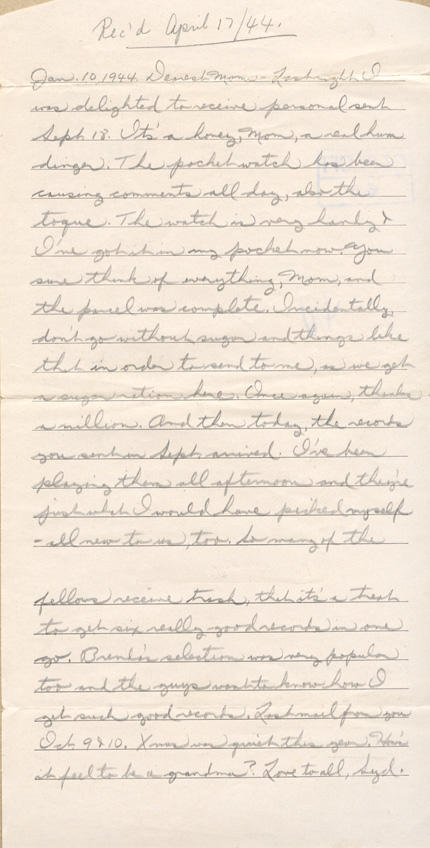 Rec'd April 17/44.
Jan. 10, 1944. Dearest Mom - Last night I
was delighted to receive personal sent
Sept 18. It's a honey, Mom, a real hum
dinger. The pocket watch has been
causing comments all day, also the
toque. The watch is very handy &
I've got it in my pocket now. You
sure think of everything, Mom, and
the parcel was complete. Incidentally,
don't go without sugar and things like
that in order to send to me, as we get
a sugar ration here. Once again, thanks
a million. And then today, the records
you sent in Sept. arrived. I've been
playing them all afternoon and they're
just what I would have picked myself
- all new to us, too. So many of the
fellows receive trash, that it's a treat
to get six really good records in one
go. selection was very popular
too and the guys want to know how I
get such good records. Last mail from you
Oct 9 & 10. Xmas was quiet this year. How's
it feel to be a grandma? Love to all, Syd.